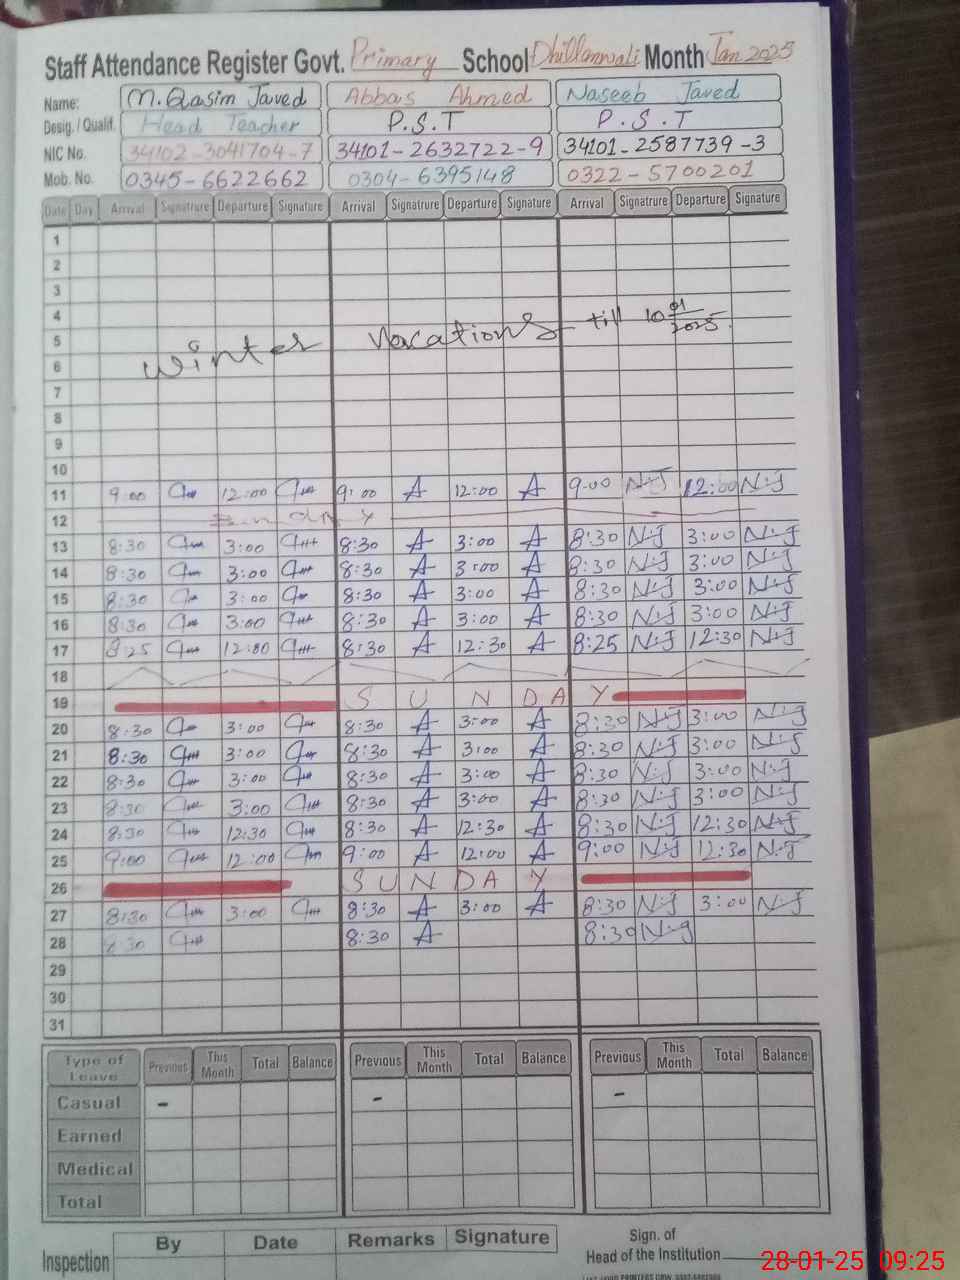 Staff Attendance Register Govt. Primary School Dhillanwali Month Jan 2025
Name: M. Qasim Javed Abbas Ahmed Naseeb Javed
Desig. / Qualif. Head Teacher P.S.T P.S.T
NIC No. 34102-3041704-7 34101-2632722-9 34101-2587739-3
Mob. No. 0345-6622662 0304-6395148 0322-5700201
Date Day Arrival Signatrure Departure Signature Arrival Signatrure Departure Signature Arrival Signatrure Departure Signature
1
2
3
4
5
winter vacations till 10 01/2025.
6
7
8
9
10
11 9:00 12:00 9:00 A 12:00 A 9:00 N.J 12:00 N.J
12 Sunday
13 8:30 3:00 8:30 A 3:00 A 8:30 N.J 3:00 N.J
14 8:30 3:00 8:30 A 3:00 A 8:30 N.J 3:00 N.J
15 8:30 3:00 8:30 A 3:00 A 8:30 N.J 3:00 N.J
16 8:30 3:00 8:30 A 3:00 A 8:30 N.J 3:00 N.J
17 8:25 12:00 8:30 A 12:30 A 8:25 N.J 12:30 N.J
18
19 SUNDAY
20 8:30 3:00 8:30 A 3:00 A 8:30 N.J 3:00 N.J
21 8:30 3:00 8:30 A 3:00 A 8:30 N.J 3:00 N.J
22 8:30 3:00 8:30 A 3:00 A 8:30 N.J 3:00 N.J
23 8:30 3:00 8:30 A 3:00 A 8:30 N.J 3:00 N.J
24 8:30 12:30 8:30 A 12:30 A 8:30 N.J 12:30 N.J
25 9:00 12:00 9:00 A 12:00 A 9:00 N.J 12:30 N.J
26 SUNDAY
27 8:30 3:00 8:30 A 3:00 A 8:30 N.J 3:00 N.J
28 8:30 8:30 A 8:30 N.J
29
30
31
Type of Leave Previous This Month Total Balance Previous This Month Total Balance Previous This Month Total Balance
Casual - - -
Earned
Medical
Total
Inspection By Date Remarks Signature
Sign. of
Head of the Institution
28-01-25 09:25